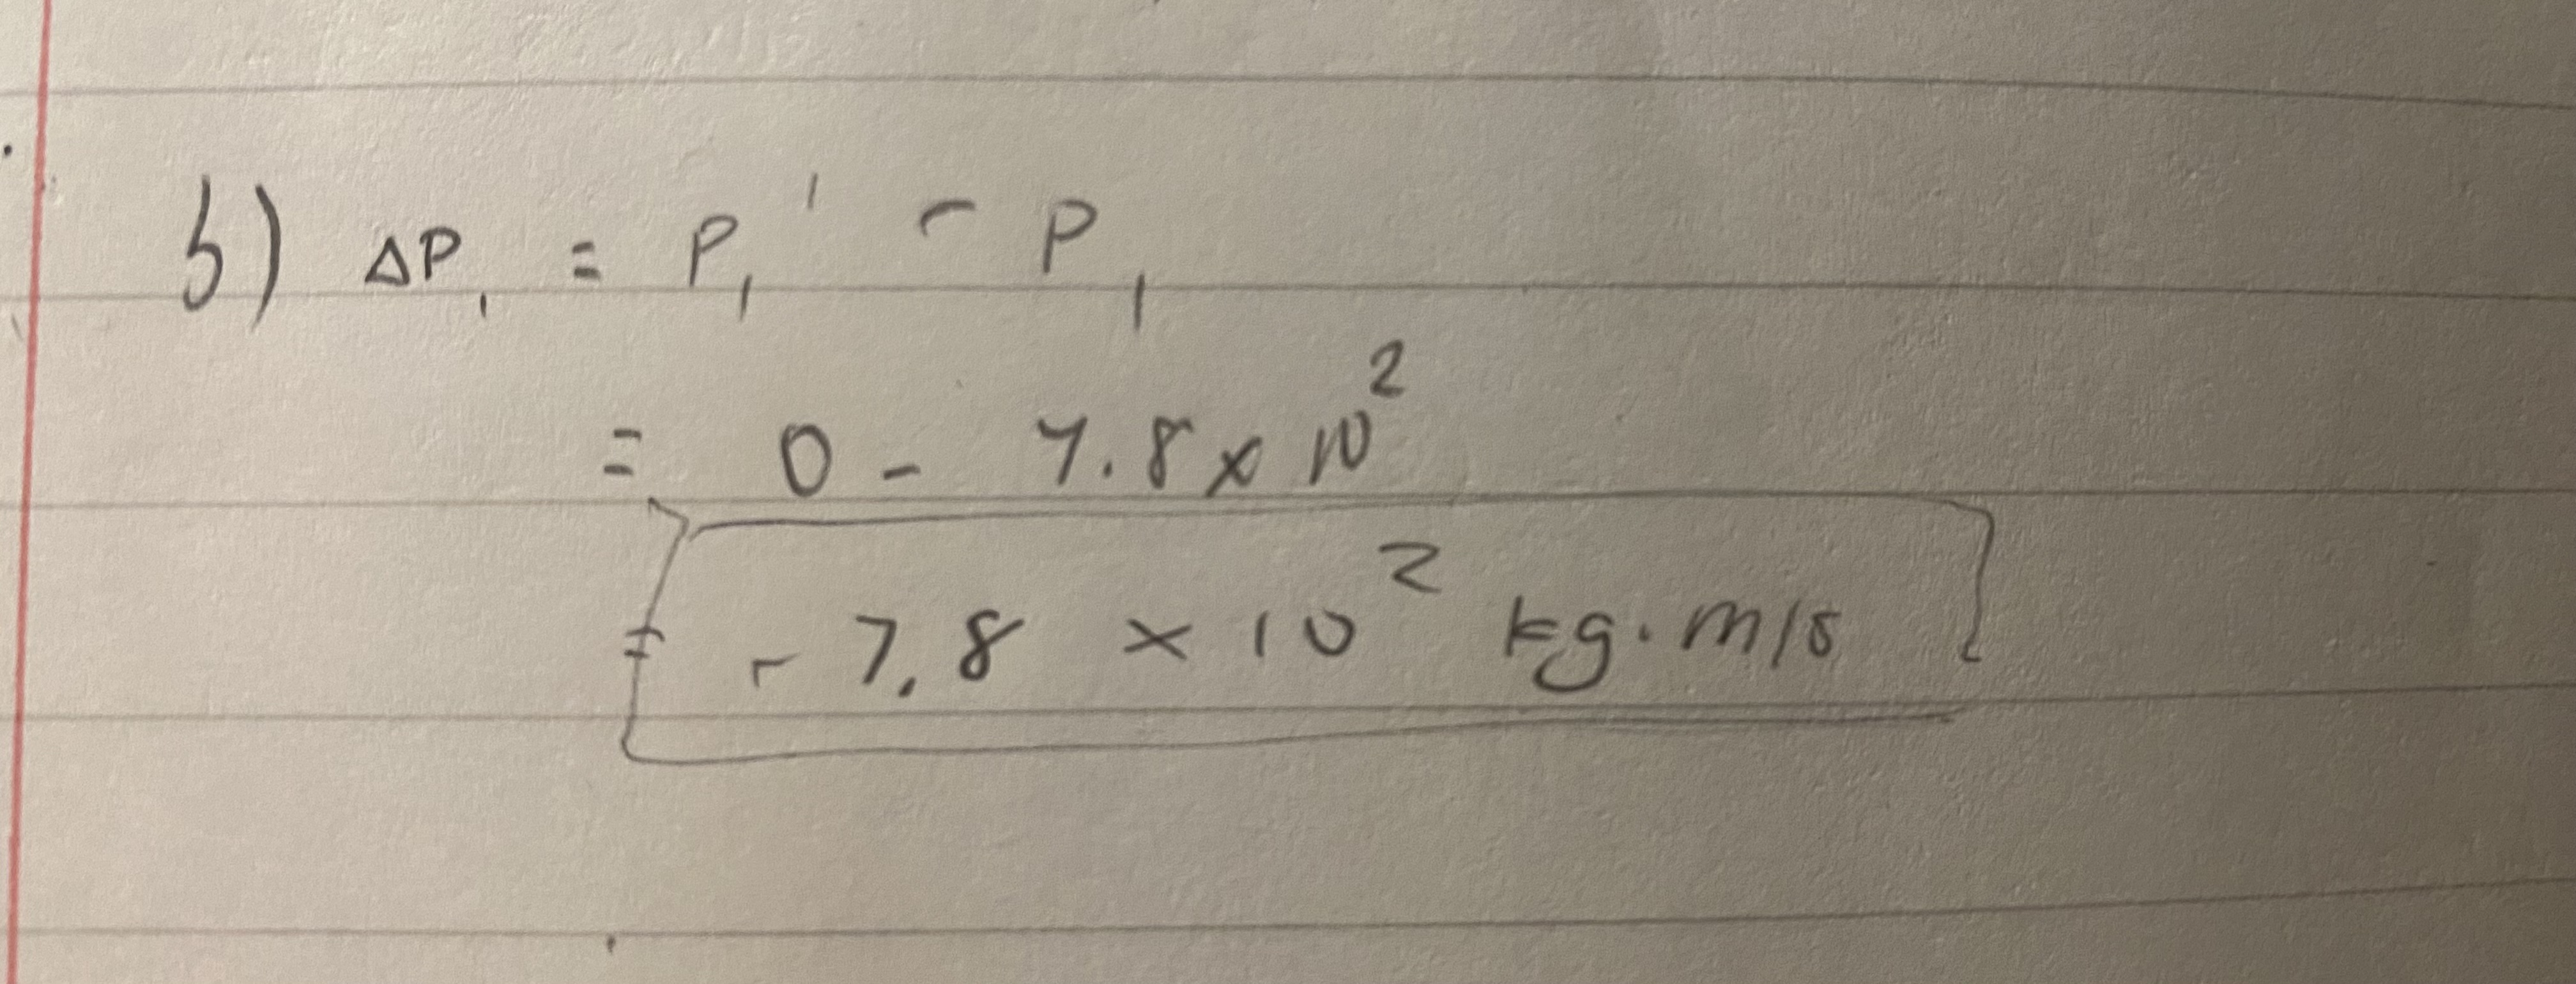 b) ΔP₁ = P₁' - P₁
= 0 - 7.8 × 10²
= - 7.8 × 10² kg·m/s